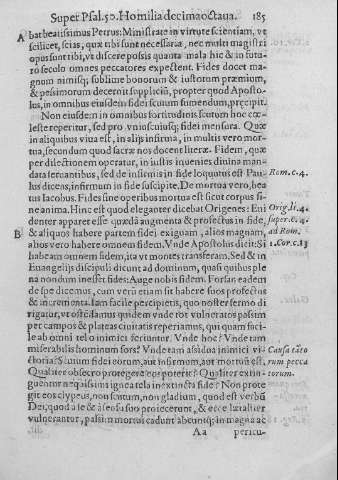 Super Psal. 50. Homilia decimaoctaua. 185
A bat beatissimus Petrus: Ministrate in virtute scientiam, vt
scilicet, scias, quæ tibi sunt necessaria, nec multi magistri
opus sunt tibi, vt discere possis quanta mala hic & in futu-
ro seculo omnes peccatores expectent. Fides docet ma-
gnum nimisq; sublime bonorum & iustorum præmium,
& pessimorum decernit supplicium, propter quod Aposto-
lus, in omnibus eiusdem fidei scutum sumendum, præcipit.
Non eiusdem in omnibus fortitudinis scutum hoc cœ-
leste reperitur, sed pro vniuscuiusq; fidei mensura. Quæ
in aliquibus viua est, in alijs infirma, in multis vero mor-
tua, secundum quod sacræ nos docent literæ. Fidem, quæ
per dilectionem operatur, in iustis inuenies diuina man-
data seruantibus, sed de infirmis in fide loquutus est Pau- Rom. c. 4.
lus dicens, infirmum in fide suscipite. De mortua vero, bea
tus Iacobus. Fides sine operibus mortua est sicut corpus si-
ne anima. Hinc est quod eleganter dicebat Origenes: Eui Orig. li. 4.
denter apparet esse quædā augmenta & profectus in fide, super. c. 4.
B & aliquos habere partem fidei exiguam, alios magnam, ad Rom.
alios vero habere omnem fidem. Vnde Apostolus dicit: Si 1. Cor. c. 13
habeam omnem fidem, ita vt montes transferam. Sed & in
Euangelijs discipuli dicunt ad dominum, quasi quibus ple
na nondum inesset fides: Auge nobis fidem. Forsan eadem
de spe dicemus, cum verū etiam sit habere suos profectus
& incrementa. Iam facile percipietis, quo noster sermo di
rigatur, vt ostēdamus quidem vnde tot vulneratos passim
per campos & plateas ciuitatis reperiamus, qui quam faci-
le ab omni telo inimici feriuntur. Vnde hoc? Vnde tam
miserabilis hominum sors? Vnde tam assidua inimici vi- Causa tāto
ctoria? Scutum fidei eorum, aut infirmum, aut mortuū est, rum pecca
Qualiter obsecro protegere eos poterit? Qualiter extin- torum.
guentur nequissimi ignea tela inextincta fide? Non prote
git eos clypeus, non scutum, non gladium, quod est verbū
Dei, quod a se & à sensu suo proiecerunt, & ecce letaliter
vulnerantur, passim mortui cadunt ab eunt[...]q; in magna ac
Aa pericu-